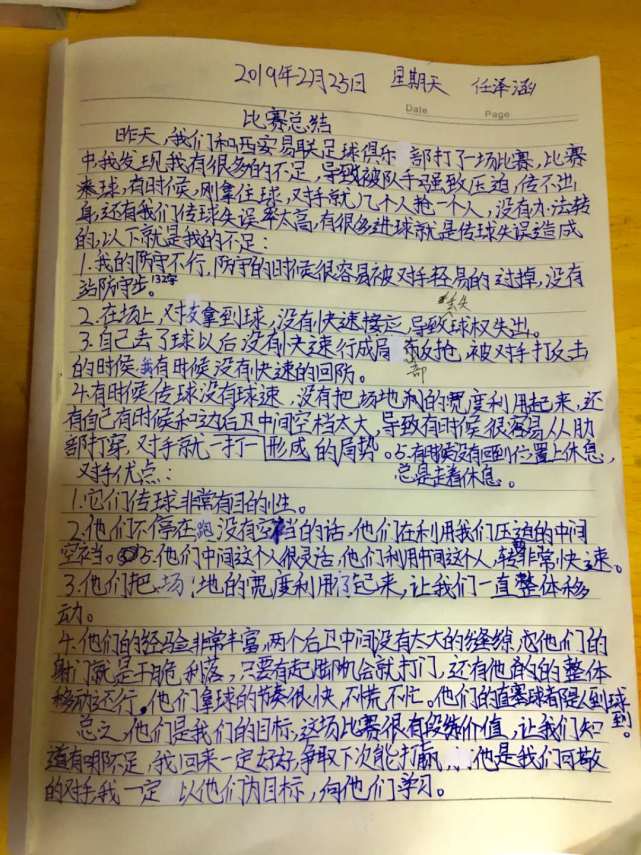 2019年2月25日 星期天 任泽涵
Date Page
比赛总结
昨天,我们和西安易联足球俱乐部打了一场比赛,比赛
中我发现我有很多的不足,导致被队手强致压迫,传不出
来球,有时候,刚拿住球,对手就几个人抢一个人,没有办法转
身,还有我们传球失误率太高,有很多进球就是传球失误造成
的,以下就是我的不足:
1.我的防守不行,防守的时候很容易被对手轻易的过掉,没有
站防守步。
2.在场上,对友拿到球,没有快速接应,导致球权失出。
丢失
3.自己丢了球以后没有快速行成局反抢,被对手打反击
部
的时候,有时候没有快速的回防。
4.有时候传球没有球速,没有把场地的宽度利用起来,还
有自己有时候和边后卫中间空档太大,导致有时候很容易从肋
部打穿,对手就一打一形成的局势。5.有时候没有回到位置上休息,
总是走着休息。
对手优点:
1.它们传球非常有目的性。
2.他们不停在跑,没有空档的话,他们在利用我们压迫的中间
空档。5.他们中间这个人很灵活,他们利用中间这个人,转非常快速。
3.他们把场地的宽度利用了起来,让我们一直整体移
动。
4.他们的经验非常丰富,两个后卫中间没有太大的缝隙,他们的
射门就是干脆利落,只要有起脚机会就打门,还有他们的整体
移动还行。他们拿球的节奏很快,不慌不忙。他们的直塞球都是人到球
到。
总之,他们是我们的目标,这场比赛很有锻炼价值,让我们知
道有哪不足,我回来一定好好,争取下次能打赢,他是我们可敬
的对手我一定以他们为目标,向他们学习。